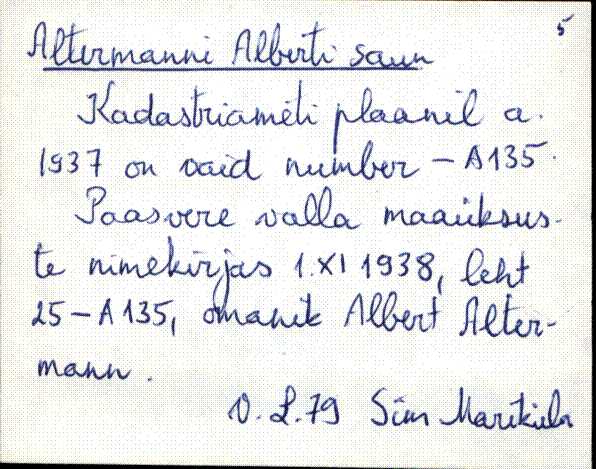 5
Altermanni Alberti saun
Kadastriameti plaanil a.
1937 on vaid number – A135.
Paasvere valla maaüksus-
te nimekirjas 1.XI 1938, leht
25 – A135, omanik Albert Alter-
mann.
V. L. 79 Sim